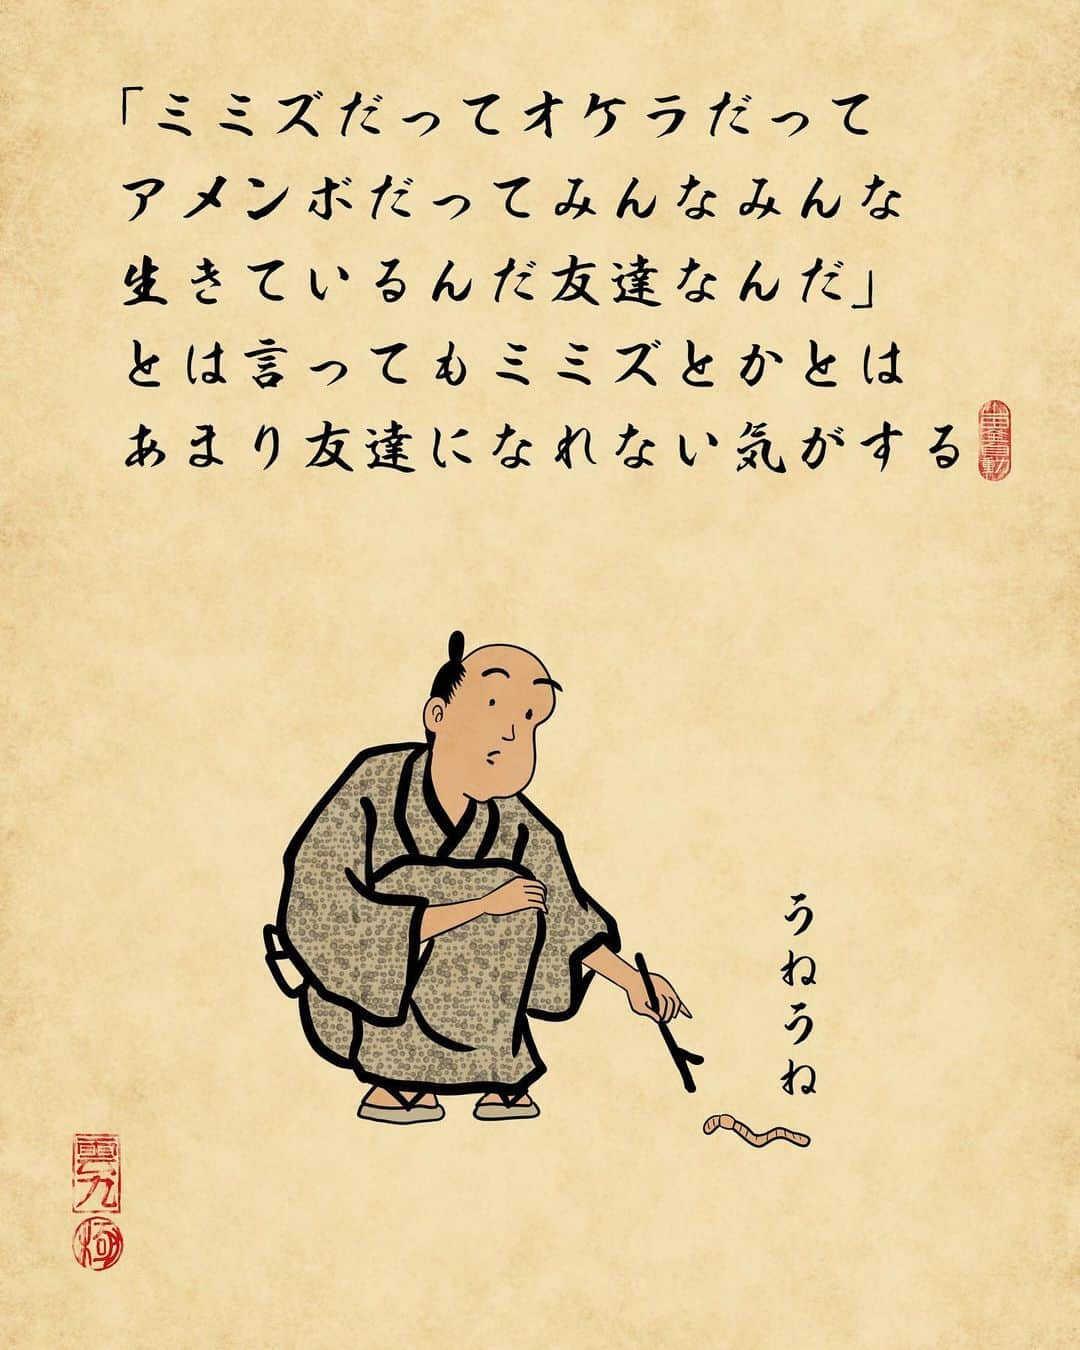 「ミミズだってオケラだって
アメンボだってみんなみんな
生きているんだ友達なんだ」
とは言ってもミミズとかとは
あまり友達になれない気がする
うねうね